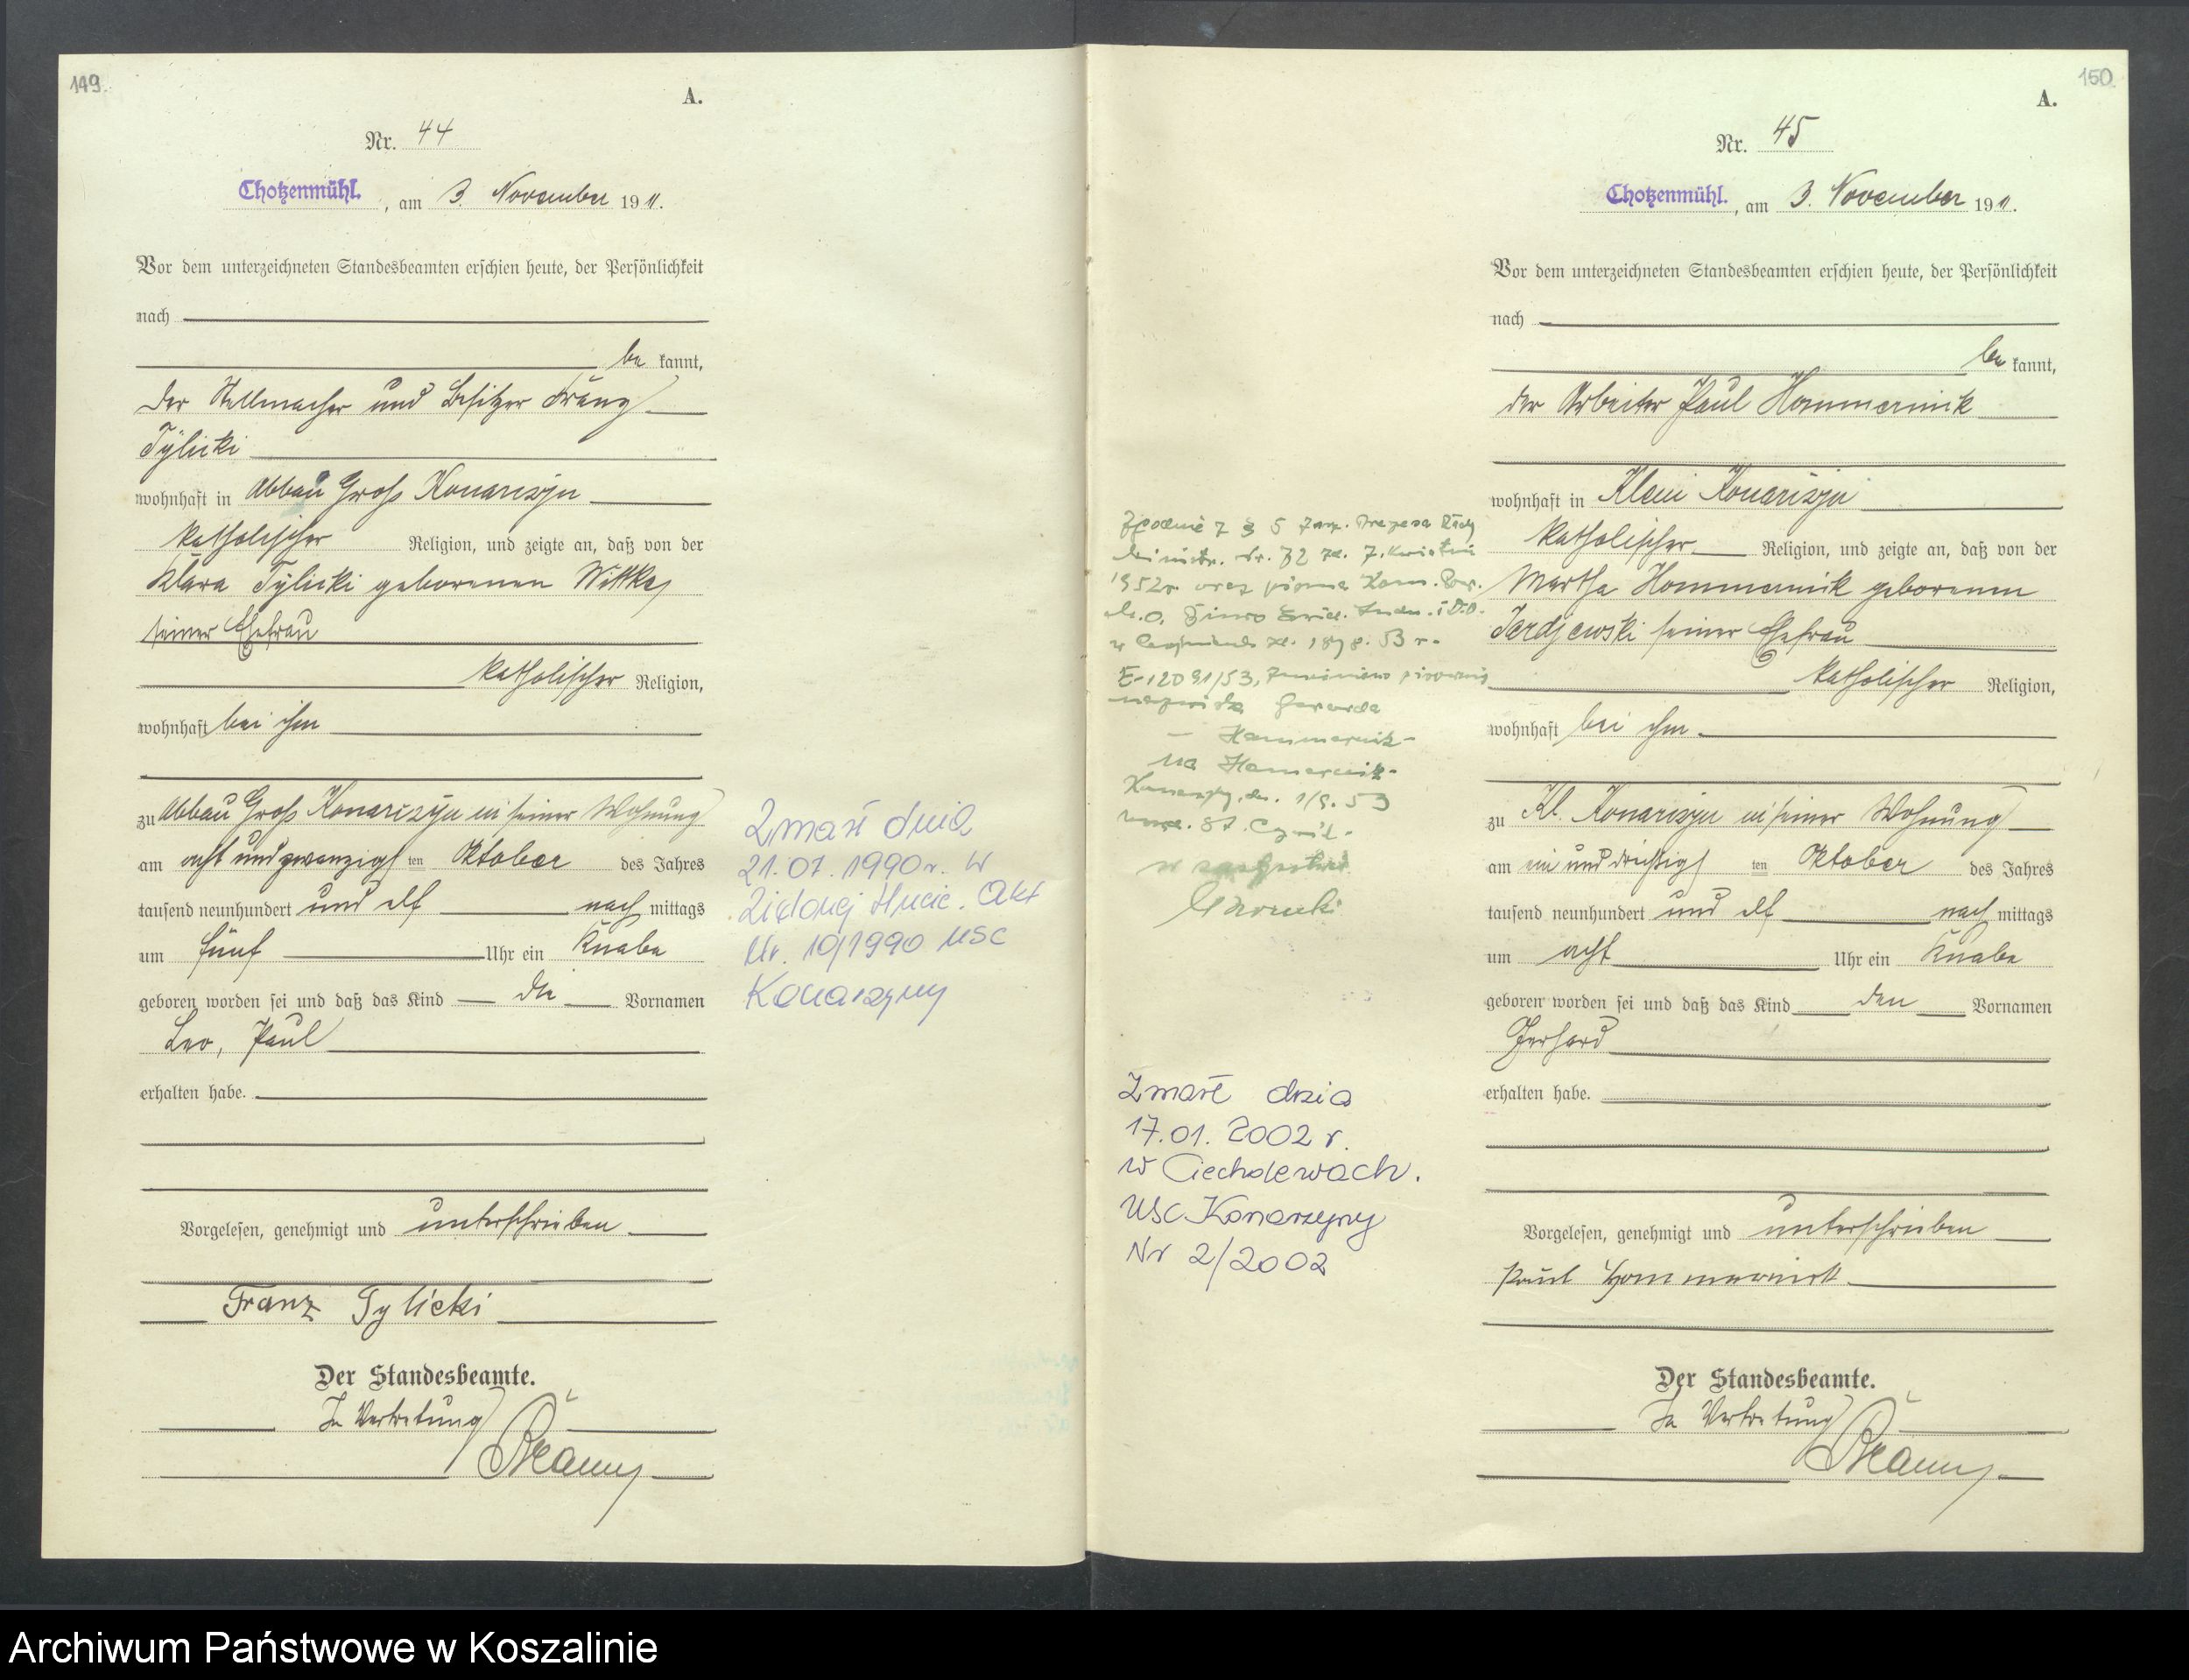 149.
A.
Nr. 44
Chotzenmühl. , am 3. November 1911.
Vor dem unterzeichneten Standesbeamten erschien heute, der Persönlichkeit
nach
be kannt,
der Stellmacher und Besitzer Franz
Tylicki
wohnhaft in Abbau Groß Konarczyn
katholischer Religion, und zeigte an, daß von der
Klara Tylicki geborenen Wittke,
seiner Ehefrau
katholischer Religion,
wohnhaft bei ihm
zu Abbau Groß Konarczyn in seiner Wohnung
am acht und zwanzigs ten Oktober des Jahres
tausend neunhundert und elf nach mittags
um fünf Uhr ein Knabe
geboren worden sei und daß das Kind die Vornamen
Leo, Paul
erhalten habe.
Vorgelesen, genehmigt und unterschrieben
Franz Tylicki
Der Standesbeamte.
In Vertretung
Zmarł dnia
21.07.1990r. w
Zielonej Hucie. Akt
Nr. 10/1990 USC
Konarzyny
150.
A.
Nr. 45
Chotzenmühl. , am 3. November 1911.
Vor dem unterzeichneten Standesbeamten erschien heute, der Persönlichkeit
nach
be kannt,
der Arbeiter Paul Hommernik
wohnhaft in Klein Konarczyn
katholischer Religion, und zeigte an, daß von der
Martha Hommernik geborenen
seiner Ehefrau
katholischer Religion,
wohnhaft bei ihm
zu Kl. Konarczyn in seiner Wohnung
am ein und dreißigs ten Oktober des Jahres
tausend neunhundert und elf nach mittags
um acht Uhr ein Knabe
geboren worden sei und daß das Kind den Vornamen
Gerhard
erhalten habe.
Vorgelesen, genehmigt und unterschrieben
Paul Hommernik
Der Standesbeamte.
In Vertretung
Zgodnie z § 5 Prezesa Rady
Ministr. Nr. 32 z 7. kwietnia
1952r. oraz pisma
E-12091/53, zmieniono pisownię
nazwiska Gerarda
- Hammernik -
na Hamernik -
1/9.53
Zmarł dnia
17.01.2002 r.
w Ciecholewach.
USC Konarzyny
Nr 2/2002
Archiwum Państwowe w Koszalinie